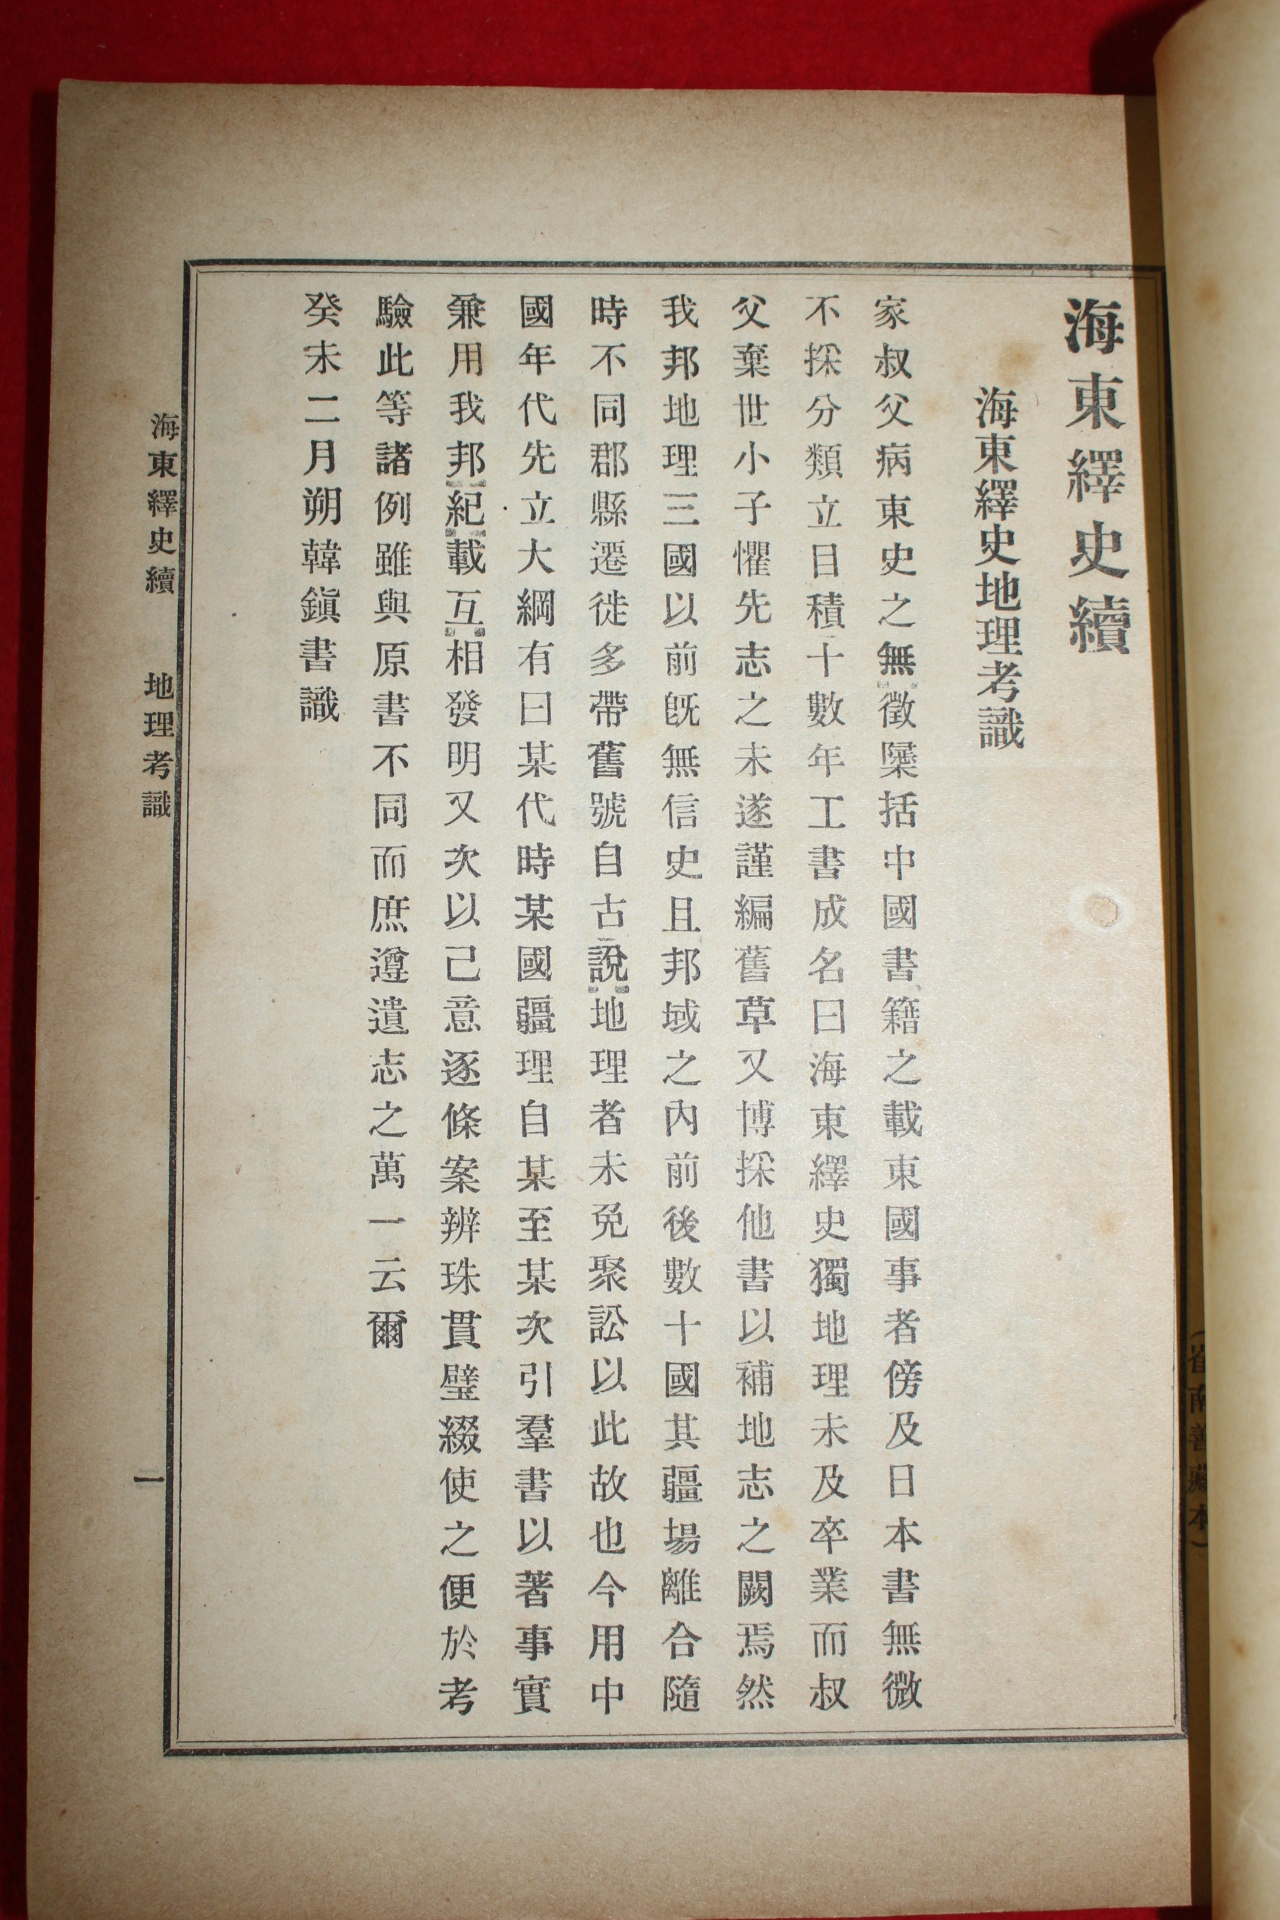 海東繹史續
海東繹史地理考識
家叔父病東史之無徵檃括中國書籍之載東國事者傍及日本書無微
不採分類立目積十數年工書成名曰海東繹史獨地理未及卒業而叔
父棄世小子懼先志之未遂謹編舊草又博採他書以補地志之闕焉然
我邦地理三國以前旣無信史且邦域之內前後數十國其疆場離合隨
時不同郡縣遷徙多帶舊號自古說地理者未免聚訟以此故也今用中
國年代先立大綱有曰某代時某國疆理自某至某次引羣書以著事實
兼用我邦紀載互相發明又次以己意逐條案辨珠貫璧綴使之便於考
驗此等諸例雖與原書不同而庶遵遺志之萬一云爾
癸未二月朔韓鎭書識
海東繹史續 地理考識
一
(崔南善藏本)